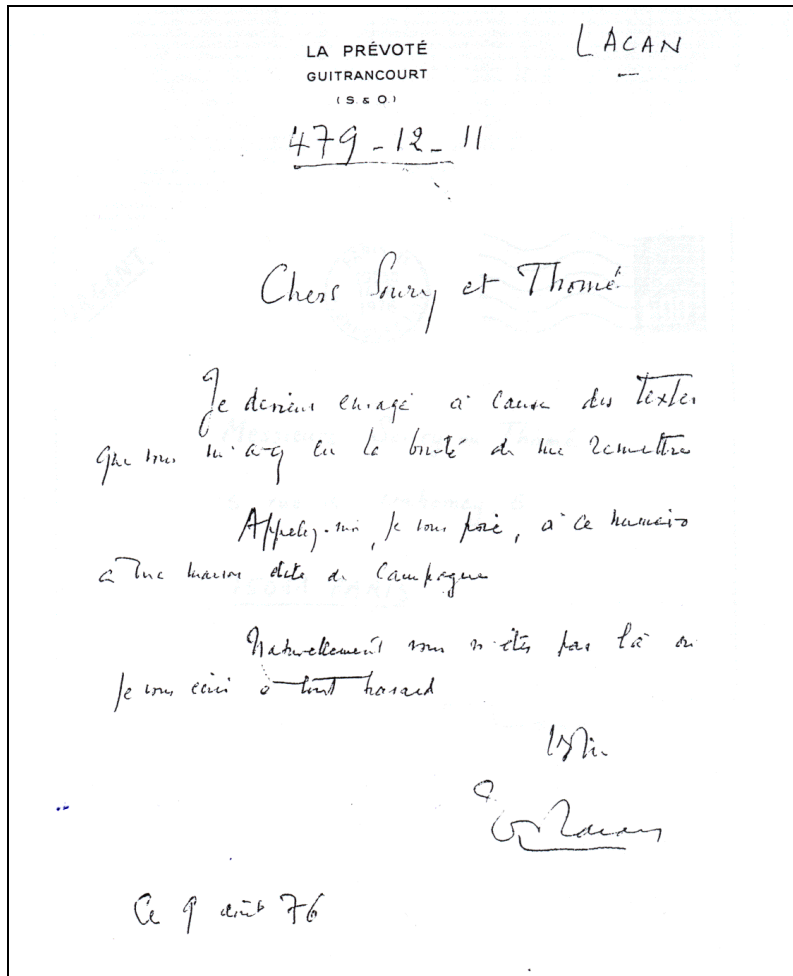 LACAN
LA PRÉVOTÉ
GUITRANCOURT
(S. & O.)
479-12-11
Chers Soury et Thomé
Je deviens enragé à cause des textes
que vous m'a-q eu la bonté de me remettre
Appelez-moi, je vous prie, à ce numéro
à ma maison dite de campagne
Naturellement vous n'êtes pas là où
je vous écris à tout hasard
Lacan
Ce 9 août 76